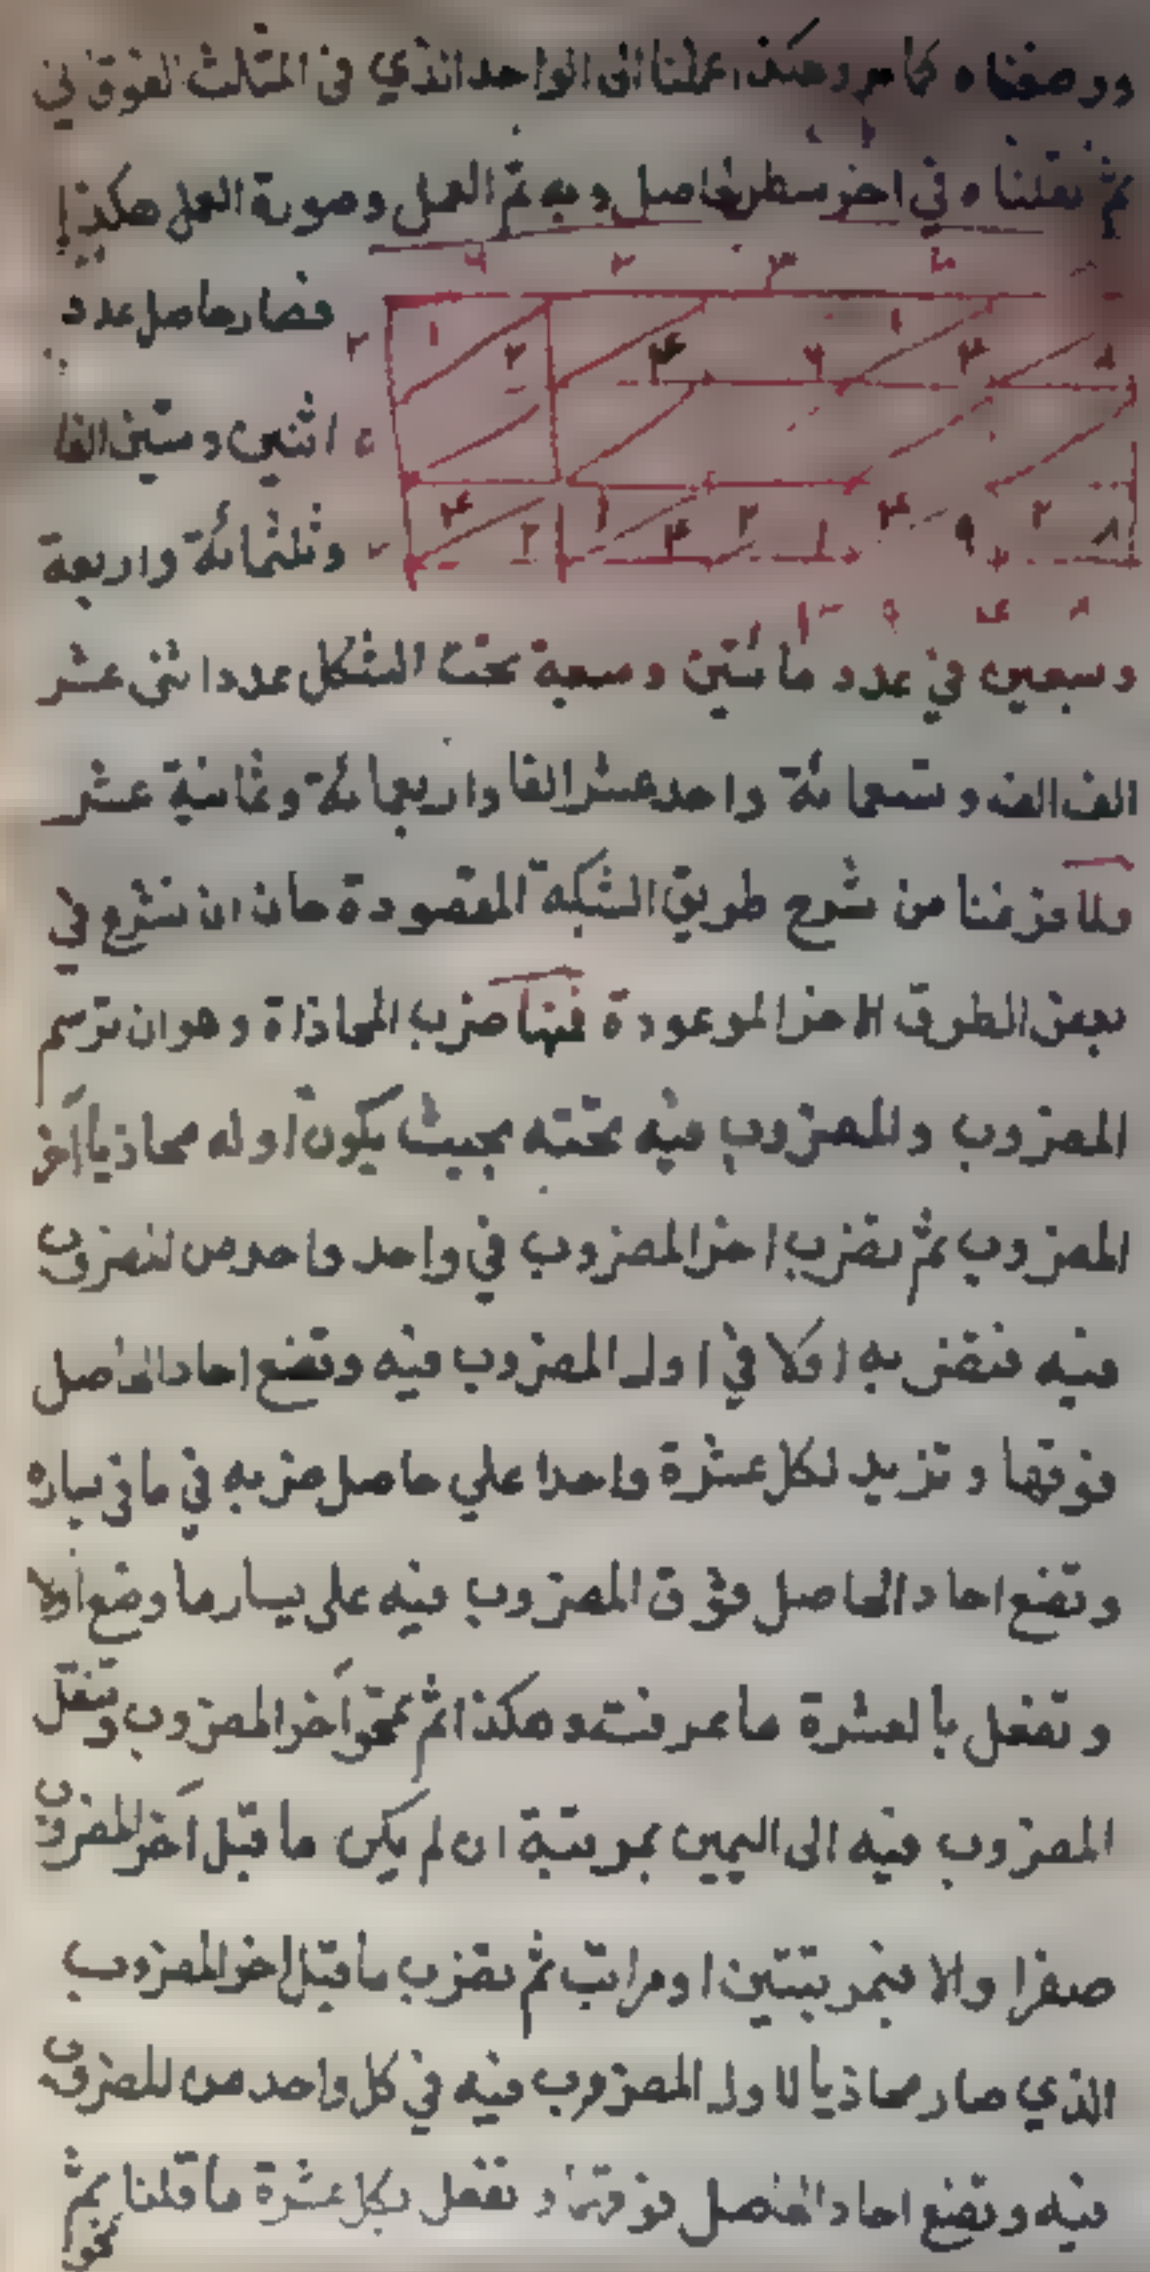 ووضعناه كما مر وهكذا عملنا الى الواحد الذي فى المثلث الفوقاني
ثم نقلناه في اخر سطر الحاصل وبه تم العمل وصورة العمل هكذا
٢ ٣ ٢ ٦
فصار حاصل عدد ٢ ١ ٢ ٤ ٦ ١ ٣ ٨
اثنين وستين الفا ٥
وثلثمائة واربعة ٤ ٢ ١ ٤ ٢ ١ ٤ ٩ ٢ ٨
وسبعين في عدد مائتين وسبعة تحت الشكل عدد اثنى عشر
الف الف وتسعمائة واحد عشر الفا واربعمائة وثمانية عشر
ولما فرغنا من شرح طريق الشبكة المقصودة حان ان نشرع في
بعض الطرق الاخر الموعودة فمنها ضرب المحاذاة وهو ان ترسم
المضروب والمضروب فيه تحته بحيث يكون اوله محاذيا لآخر
المضروب ثم تضرب اخر المضروب في واحد واحد من المضروب
فيه فتضربه اولا في اول المضروب فيه وتضع احاد الحاصل
فوقها وتزيد لكل عشرة واحدا علي حاصل ضربه في ما في يساره
وتضع احاد الحاصل فوق المضروب فيه على يسار ما وضع اولا
وتفعل بالعشرة ما عرفت وهكذا ثم تمحو آخر المضروب وتنقل
المضروب فيه الى اليمين بمرتبة ان لم يكن ما قبل آخر المضروب
صفرا والا فبمرتبتين او مراتب ثم تضرب ما قبل اخر المضروب
الذي صار محاذيا لاول المضروب فيه في كل واحد من المضروب
فيه وتضع احاد الحاصل فوقها وتفعل بكل عشرة ما قلنا ثم
تمحو